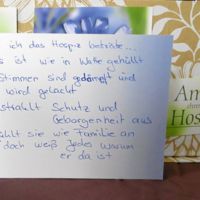 ich das Hospiz betrete...
s ist wie in Watte gehüllt
Stimmen sind gedämpft und
wird gelacht
strahlt Schutz und
Geborgenheit aus
ühlt sie wie Familie an
doch weiß Jedes warum
er da ist
Am
Hos